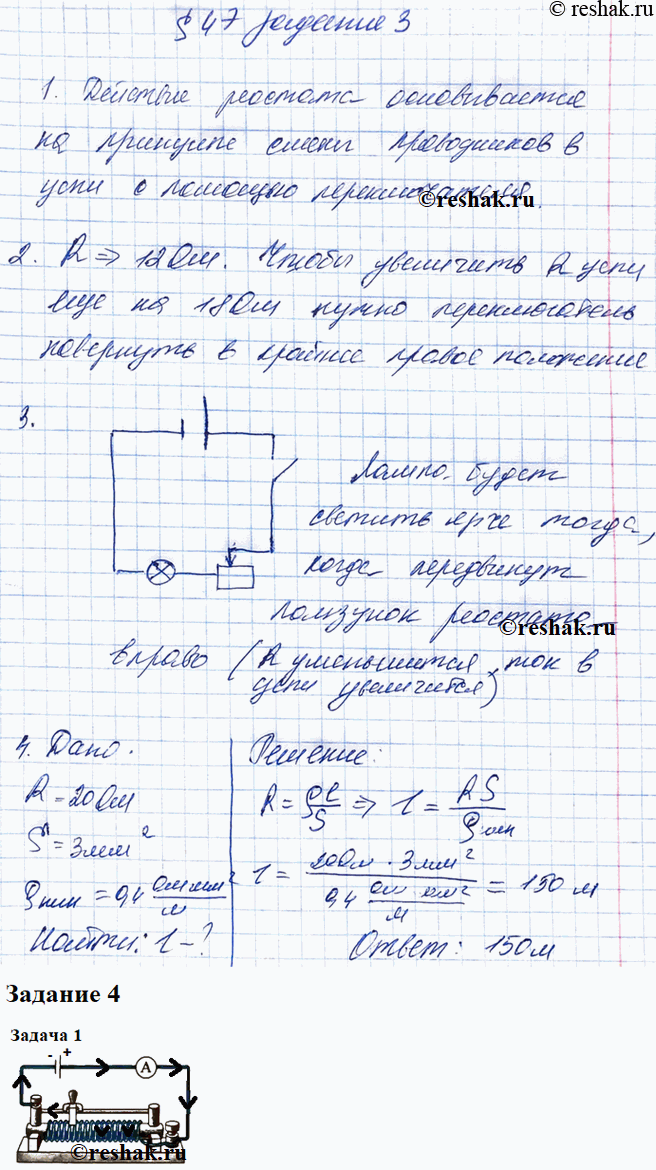 © reshak.ru
§ 47 задание 3
1. Действие реостата основывается
на принципе смены проводников в
цепи с помощью переключателя.
©reshak.ru
2. R ⇒ 12 Ом. Чтобы увеличить R цепи
еще на 18 Ом нужно переключатель
повернуть в крайнее правое положение
3.
Лампа будет
светить ярче тогда,
когда передвинут
ползунок реостата
©reshak.ru
вправо (R уменьшится, ток в
цепи увеличится)
4. Дано: Решение:
R = 20 Ом R = ρl/S ⇒ l = RS/ρник
S = 3 мм²
l = 20 Ом · 3 мм² / 0,4 Ом мм²/м = 150 м
ρник = 0,4 Ом мм²/м
Найти: l - ? Ответ: 150 м
Задание 4
Задача 1
- + A
©reshak.ru